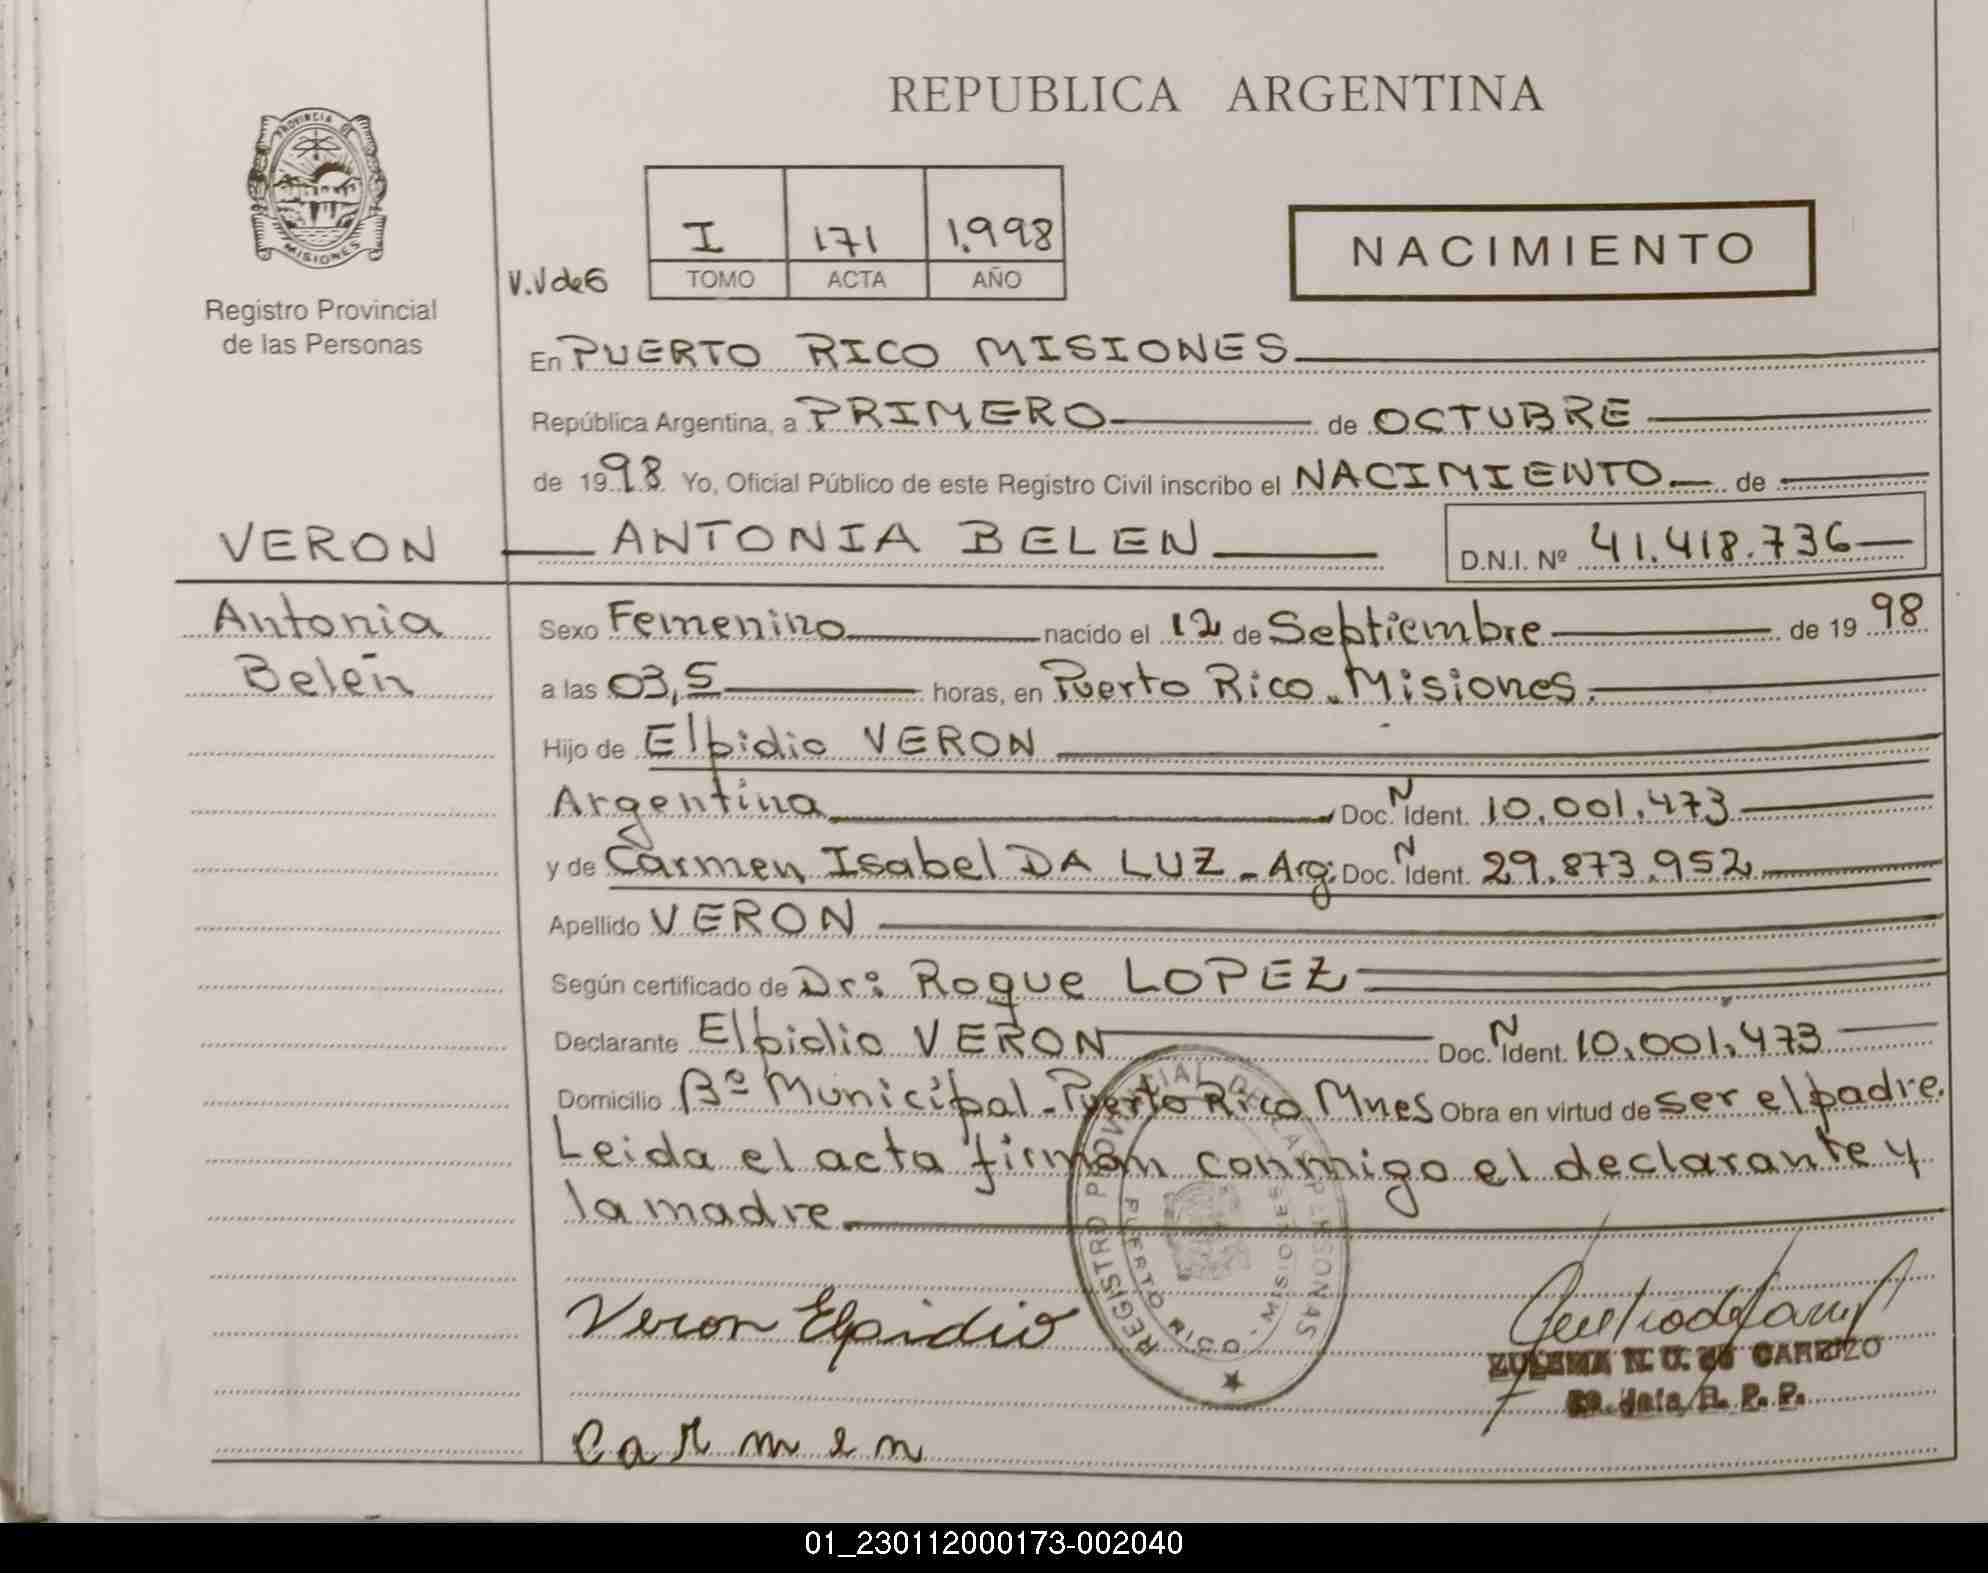 REPUBLICA ARGENTINA
PROVINCIA DE
MISIONES
Registro Provincial
de las Personas
V.V de G
I 171 1.998
TOMO ACTA AÑO
NACIMIENTO
En PUERTO RICO MISIONES
República Argentina, a PRIMERO de OCTUBRE
de 1998 Yo, Oficial Público de este Registro Civil inscribo el NACIMIENTO de
VERON ANTONIA BELEN D.N.I. Nº 41.418.736
Antonia
Belén
Sexo Femenino nacido el 12 de Septiembre de 19 98
a las 03,5 horas, en Puerto Rico. Misiones.
Hijo de Elpidio VERON
Argentina Doc. N Ident. 10.001.473
y de Carmen Isabel DA LUZ - Arg: Doc. N Ident. 29.873.952
Apellido VERON
Según certificado de Dr: Roque LOPEZ
Declarante Elpidio VERON Doc. N Ident. 10.001.473
Domicilio Bº Municipal - Puerto Rico Mnes Obra en virtud de ser el padre.
Leida el acta firman conmigo el declarante y
la madre
REGISTRO PROVINCIAL DE LAS PERSONAS
PUERTO RICO - MISIONES
Veron Elpidio
ZULEMA N. O. de CARRIZO
R. P. P.
Carmen
01_230112000173-002040